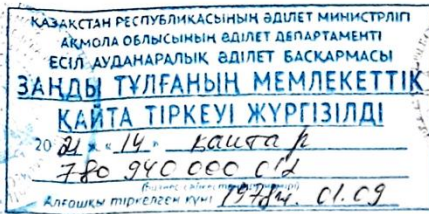 ҚАЗАҚСТАН РЕСПУБЛИКАСЫНЫҢ ӘДІЛЕТ МИНИСТРЛІГІ
АҚМОЛА ОБЛЫСЫНЫҢ ӘДІЛЕТ ДЕПАРТАМЕНТІ
ЕСІЛ АУДАНАРАЛЫҚ ӘДІЛЕТ БАСҚАРМАСЫ
ЗАҢДЫ ТҰЛҒАНЫҢ МЕМЛЕКЕТТІК
ҚАЙТА ТІРКЕУІ ЖҮРГІЗІЛДІ
20 21 ж «14» қаңтар
780 940 000 012
Алғашқы тіркелген күні 1978ж. 01.09